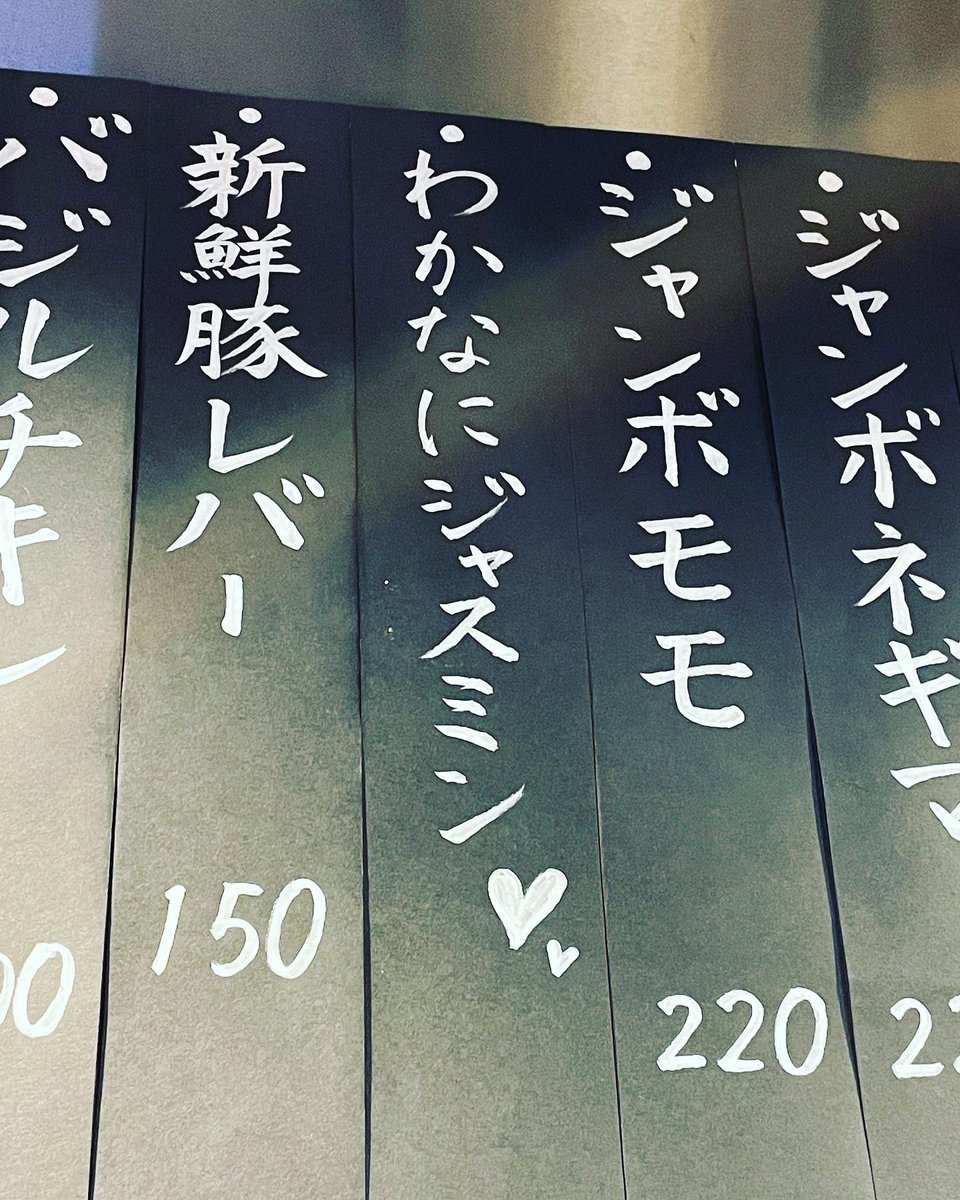 ジャンボネギマ
ジャンボモモ
220
わかなにジャスミン
新鮮豚レバー
150
バジルチキン